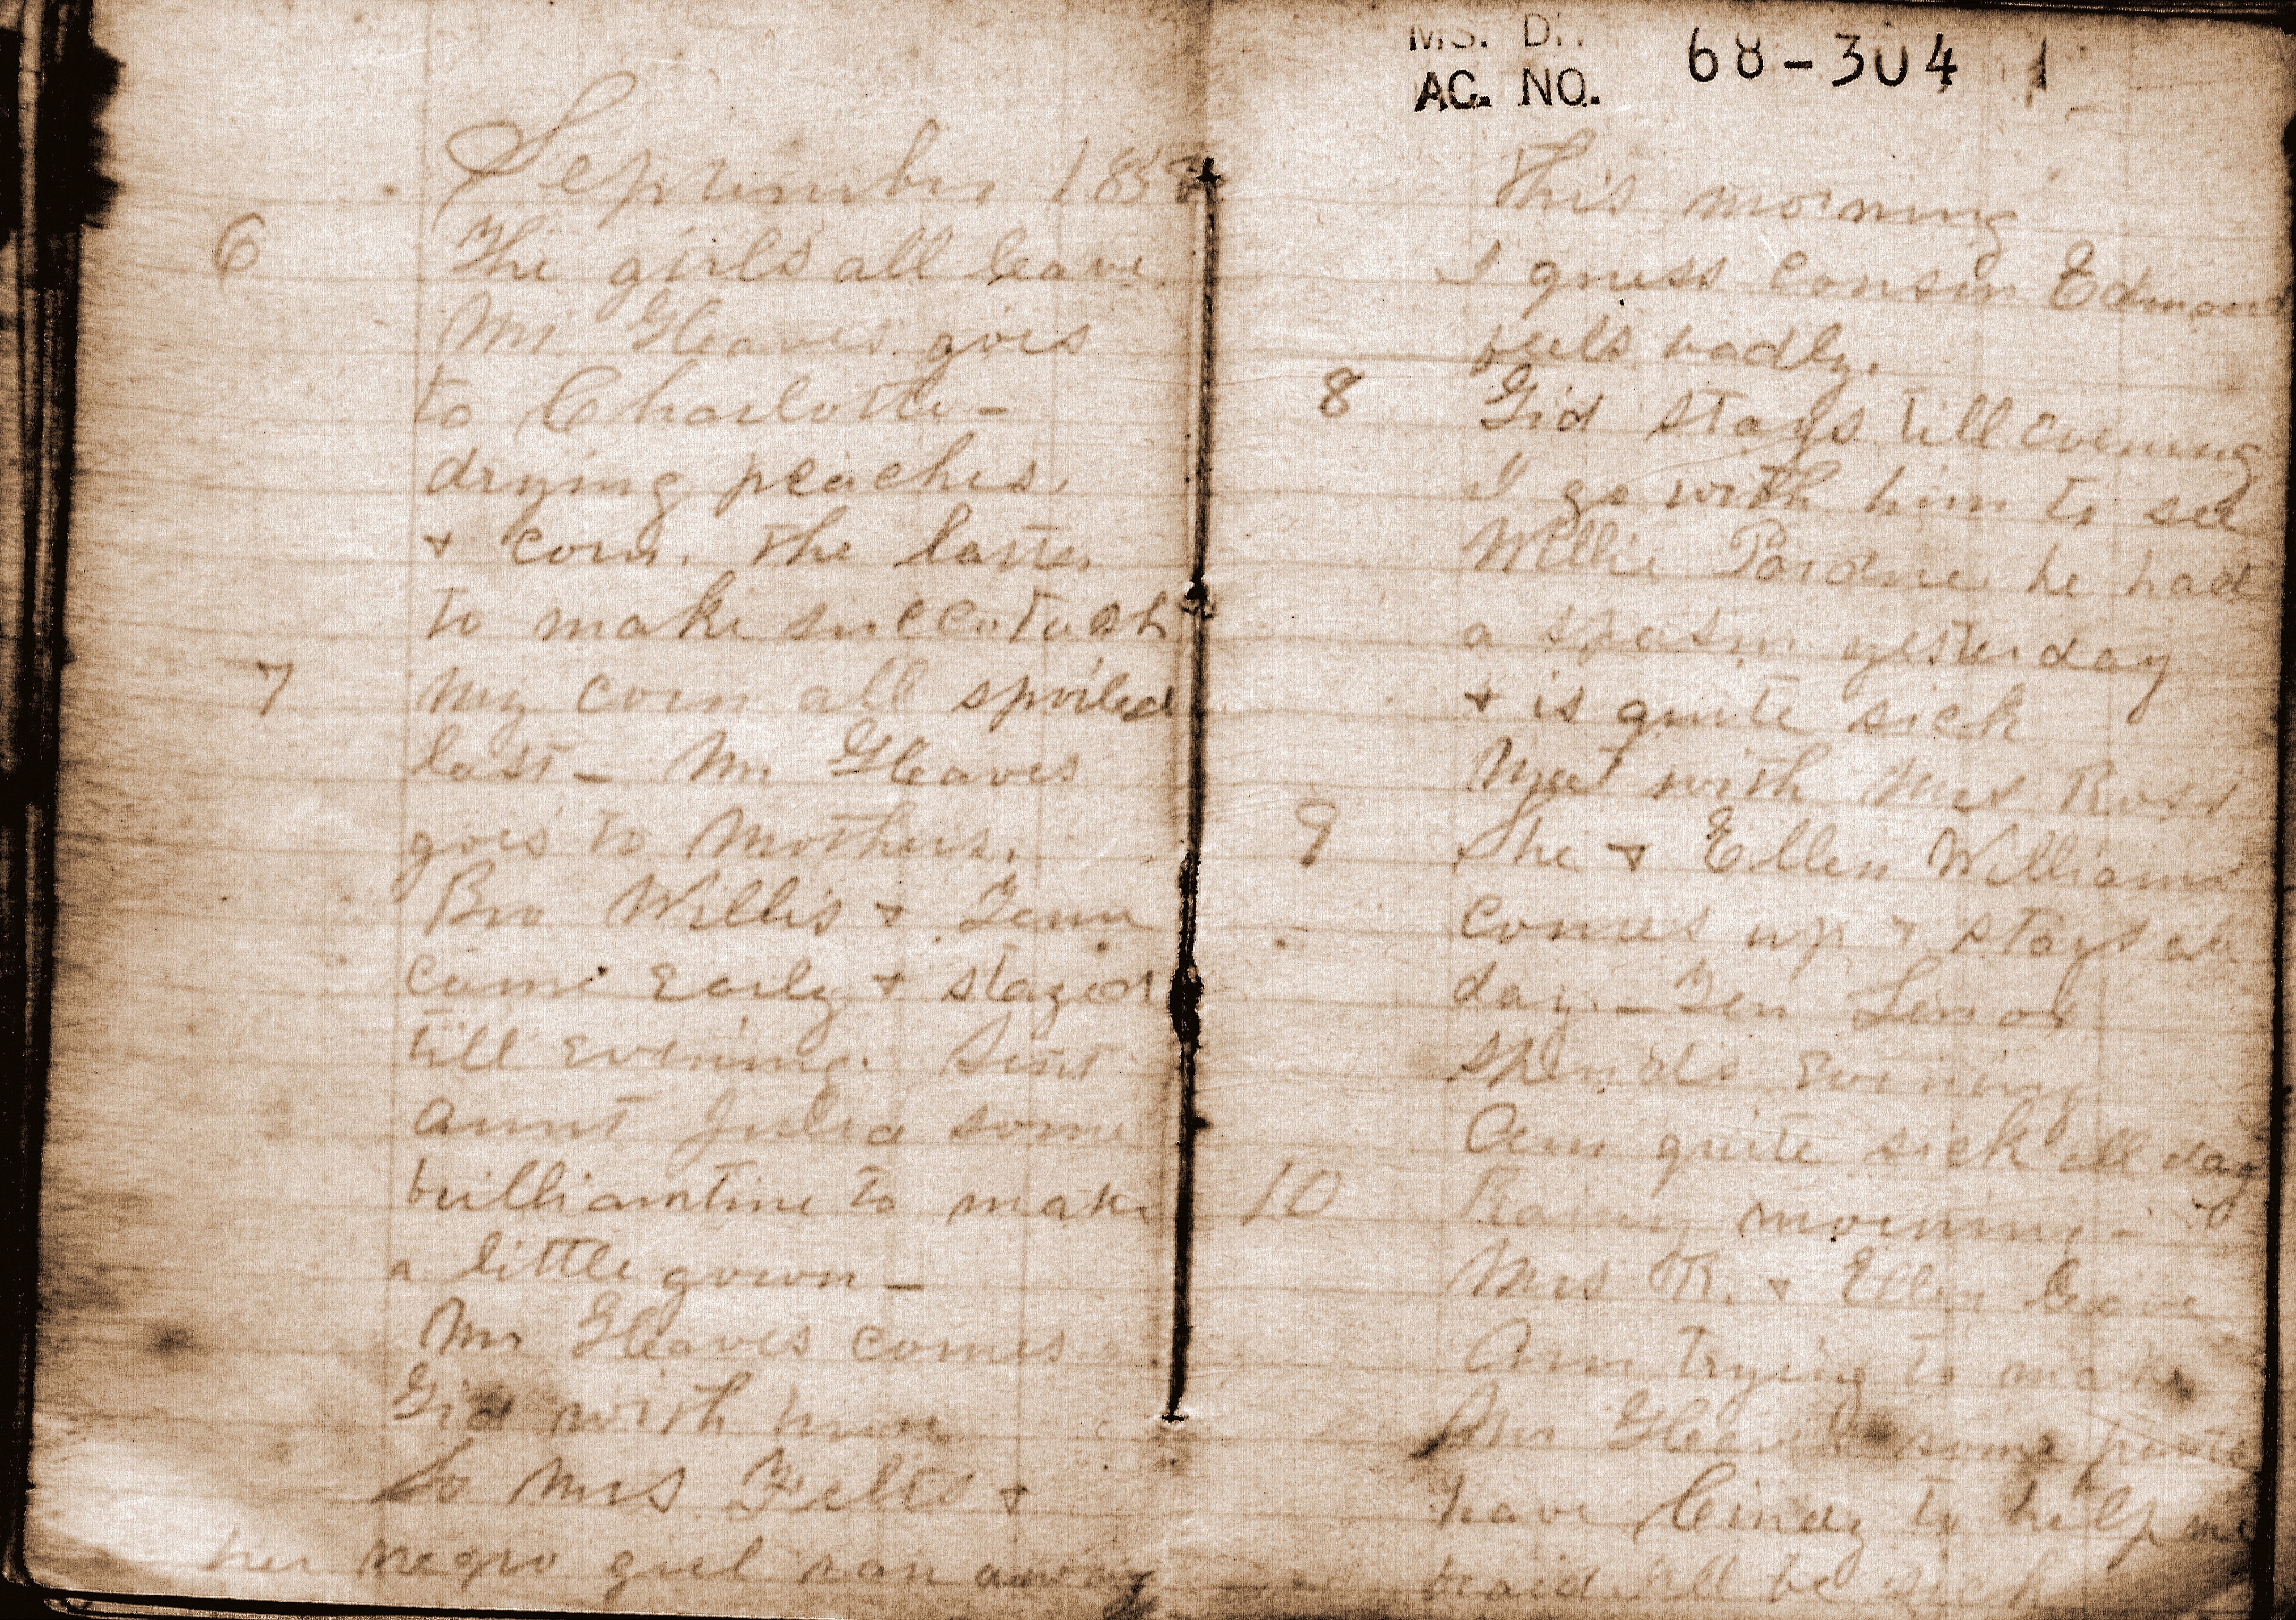 September 185
6 The girls all leave
Mr Gleaves goes
to Charlotte -
drying peaches,
& corn. The latter
to make succotash
7 My corn all spoiled
last - Mr Gleaves
goes to Mothers.
Bro Willis & Tenn
came early & stayed
till evening. Sent
aunt Julia some
brilliantine to make
a little gown -
Mr Gleaves comes
Gid with him
So Mrs Felts &
her negro girl ran away
MS. D
AC. NO. 68-304 1
This morning
I guess cousin Edmond
feels badly.
8 Gid stays till evening
I go with him to see
Willie Pardue he had
a spasm yesterday
& is quite sick
Met with Mrs Ross
9 She & Ellen Williams
comes up & stays all
day. - Ten Lenox
spends evening
Am quite sick all day
10 Rainy morning -
Mrs R. & Ellen leave
Am trying to make
Mr Gleaves some pants
have Cindy to help me
braid Ill be sick